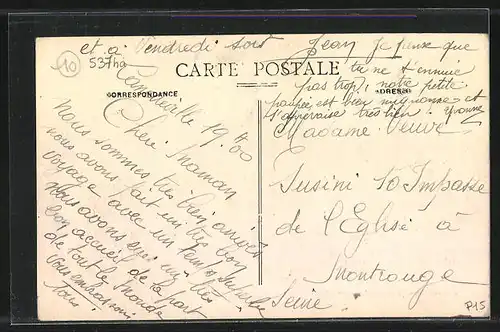 et à Vendredi soir
10
537ha
CARTE POSTALE
CORRESPONDANCE
ADRESSE
19
Chère Maman
nous sommes très bien arrivés
nous avons fait un très bon
voyage avec un temps superbe
nous avons eu un très
bon accueil de la part
de tout le monde
vous embrassons
Tous.
Jean je pense que
tu ne t'ennuie
pas trop, notre petite
poupée est bien mignonne et
s'apprivoise très bien. Yvonne
Madame Veuve
Susini 10 Impasse
de l'Eglise à
Montrouge
Seine
P15